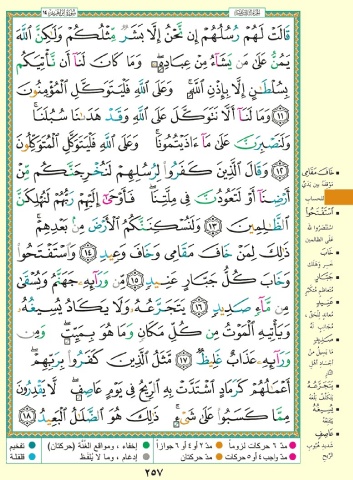 الجزء الثالث عشر
سورة إبراهيم ١٤
قَالَتْ لَهُمْ رُسُلُهُمْ إِن نَّحْنُ إِلَّا بَشَرٌ مِّثْلُكُمْ وَلَٰكِنَّ ٱللَّهَ
يَمُنُّ عَلَىٰ مَن يَشَآءُ مِنْ عِبَادِهِۦ ۖ وَمَا كَانَ لَنَآ أَن نَّأْتِيَكُم
بِسُلْطَٰنٍ إِلَّا بِإِذْنِ ٱللَّهِ ۚ وَعَلَى ٱللَّهِ فَلْيَتَوَكَّلِ ٱلْمُؤْمِنُونَ
١١ وَمَا لَنَآ أَلَّا نَتَوَكَّلَ عَلَى ٱللَّهِ وَقَدْ هَدَىٰنَا سُبُلَنَا ۚ
وَلَنَصْبِرَنَّ عَلَىٰ مَآ ءَاذَيْتُمُونَا ۚ وَعَلَى ٱللَّهِ فَلْيَتَوَكَّلِ ٱلْمُتَوَكِّلُونَ
١٢ وَقَالَ ٱلَّذِينَ كَفَرُوا۟ لِرُسُلِهِمْ لَنُخْرِجَنَّكُم مِّنْ
أَرْضِنَآ أَوْ لَتَعُودُنَّ فِى مِلَّتِنَا ۖ فَأَوْحَىٰٓ إِلَيْهِمْ رَبُّهُمْ لَنُهْلِكَنَّ
ٱلظَّٰلِمِينَ ١٣ وَلَنُسْكِنَنَّكُمُ ٱلْأَرْضَ مِنۢ بَعْدِهِمْ ۚ
ذَٰلِكَ لِمَنْ خَافَ مَقَامِى وَخَافَ وَعِيدِ ١٤ وَٱسْتَفْتَحُوا۟
وَخَابَ كُلُّ جَبَّارٍ عَنِيدٍ ١٥ مِّن وَرَآئِهِۦ جَهَنَّمُ وَيُسْقَىٰ
مِن مَّآءٍ صَدِيدٍ ١٦ يَتَجَرَّعُهُۥ وَلَا يَكَادُ يُسِيغُهُۥ
وَيَأْتِيهِ ٱلْمَوْتُ مِن كُلِّ مَكَانٍ وَمَا هُوَ بِمَيِّتٍ ۖ وَمِن
وَرَآئِهِۦ عَذَابٌ غَلِيظٌ ١٧ مَّثَلُ ٱلَّذِينَ كَفَرُوا۟ بِرَبِّهِمْ ۖ
أَعْمَٰلُهُمْ كَرَمَادٍ ٱشْتَدَّتْ بِهِ ٱلرِّيحُ فِى يَوْمٍ عَاصِفٍ ۖ لَّا يَقْدِرُونَ
مِمَّا كَسَبُوا۟ عَلَىٰ شَىْءٍ ۚ ذَٰلِكَ هُوَ ٱلضَّلَٰلُ ٱلْبَعِيدُ ١٨
خاف مقامي
موقفه بين يدي
للحساب
استفتحوا
استنصروا الله
على الظالمين
خاب
خسر وهلك
جبار
متعاظم متكبر
عنيد
معاند للحق
مجانب له
صديد
ما يسيل من
أجساد أهل النار
يتجرعه
يتكلف بلعه
يسيغه
يبتلعه
عاصف
شديد هبوب
الريح
مد ٦ حركات لزوماً
مد ٢ أو ٤ أو ٦ جوازاً
إخفاء، ومواقع الغنة (حركتان)
تفخيم
مد واجب ٤ أو ٥ حركات
مد حركتان
إدغام، وما لا يُلفظ
قلقلة
٢٥٧